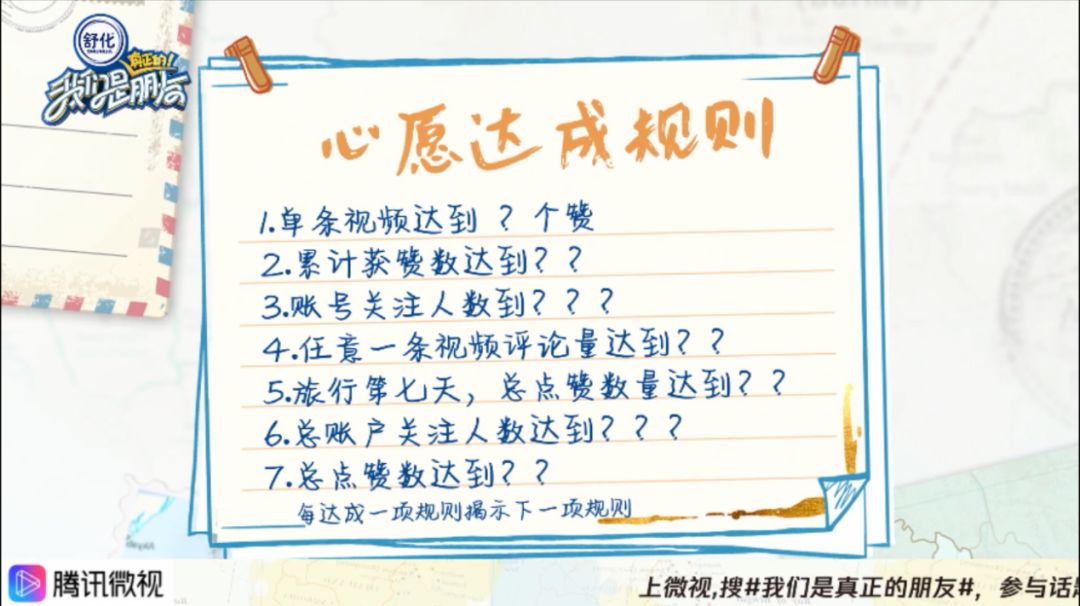 舒化
真正的!
我们是朋友
心愿达成规则
1.单条视频达到 ? 个赞
2.累计获赞数达到? ?
3.账号关注人数到? ? ?
4.任意一条视频评论量达到? ?
5.旅行第七天, 总点赞数量达到? ?
6.总账户关注人数达到? ? ?
7.总点赞数达到? ?
每达成一项规则揭示下一项规则
腾讯微视
上微视,搜#我们是真正的朋友#, 参与话题